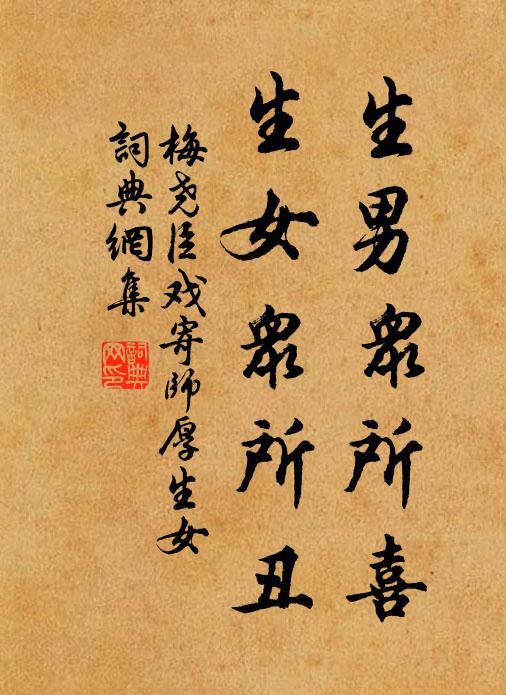 生男眾所喜
生女眾所丑
梅堯臣戏寄師厚生女
詞典網集
詞典網印